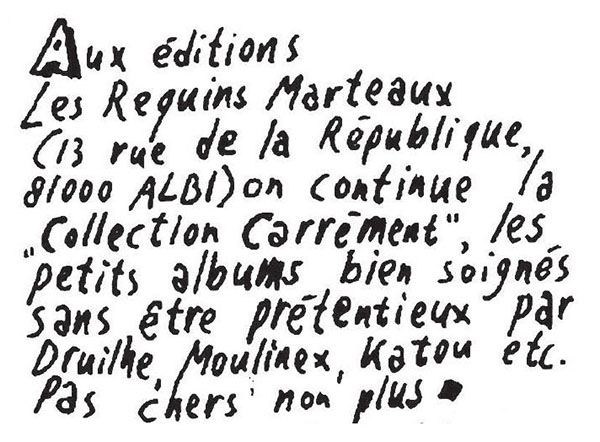 Aux éditions
Les Requins Marteaux
(13 rue de la République,
81000 ALBI) on continue la
„Collection Carrément", les
petits albums bien soignés
sans être prétentieux par
Druilhe, Moulinex, Katou etc.
Pas chers non plus